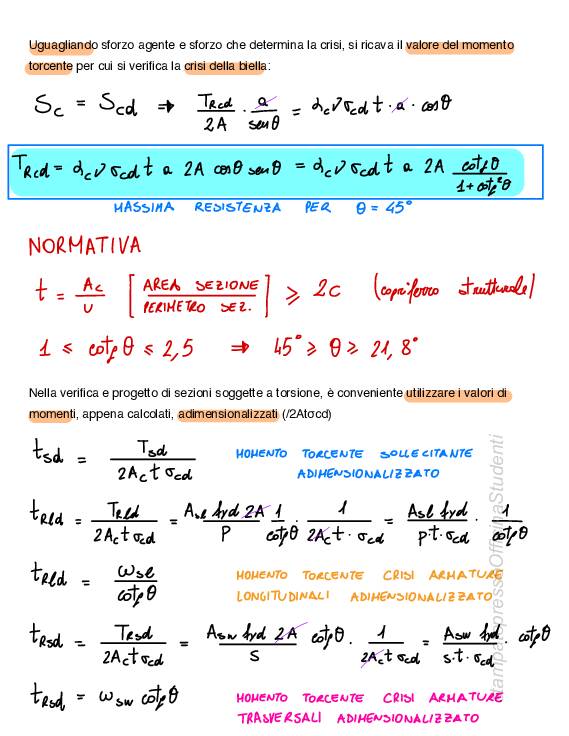 Uguagliando sforzo agente e sforzo che determina la crisi, si ricava il valore del momento
torcente per cui si verifica la crisi della biella:
Sc = Scd ⇒ TRcd/2A · a/senθ = αc ν σcd t · a · cosθ
TRcd = αc ν σcd t a 2A cosθ senθ = αc ν σcd t a 2A cotgθ/(1+cotg²θ)
MASSIMA RESISTENZA PER θ = 45°
NORMATIVA
t = Ac/U [AREA SEZIONE/PERIMETRO SEZ.] ≥ 2c (copriferro strutturale)
1 ≤ cotgθ ≤ 2,5 ⇒ 45° ≥ θ ≥ 21,8°
Nella verifica e progetto di sezioni soggette a torsione, è conveniente utilizzare i valori di
momenti, appena calcolati, adimensionalizzati (/2Atσcd)
tsd = Tsd/(2Ac t σcd) MOMENTO TORCENTE SOLLECITANTE
ADIMENSIONALIZZATO
tRld = TRld/(2Ac t σcd) = Asl fyd 2A/P · 1/cotgθ · 1/(2Ac t · σcd) = Asl fyd/(p·t·σcd) · 1/cotgθ
tRld = ωsl/cotgθ MOMENTO TORCENTE CRISI ARMATURE
LONGITUDINALI ADIMENSIONALIZZATO
tRsd = TRsd/(2Ac t σcd) = Asw fyd 2A/S cotgθ · 1/(2Ac t σcd) = Asw fyd/(s·t·σcd) · cotgθ
tRsd = ωsw cotgθ MOMENTO TORCENTE CRISI ARMATURE
TRASVERSALI ADIMENSIONALIZZATO
stampato presso OfficinaStudenti